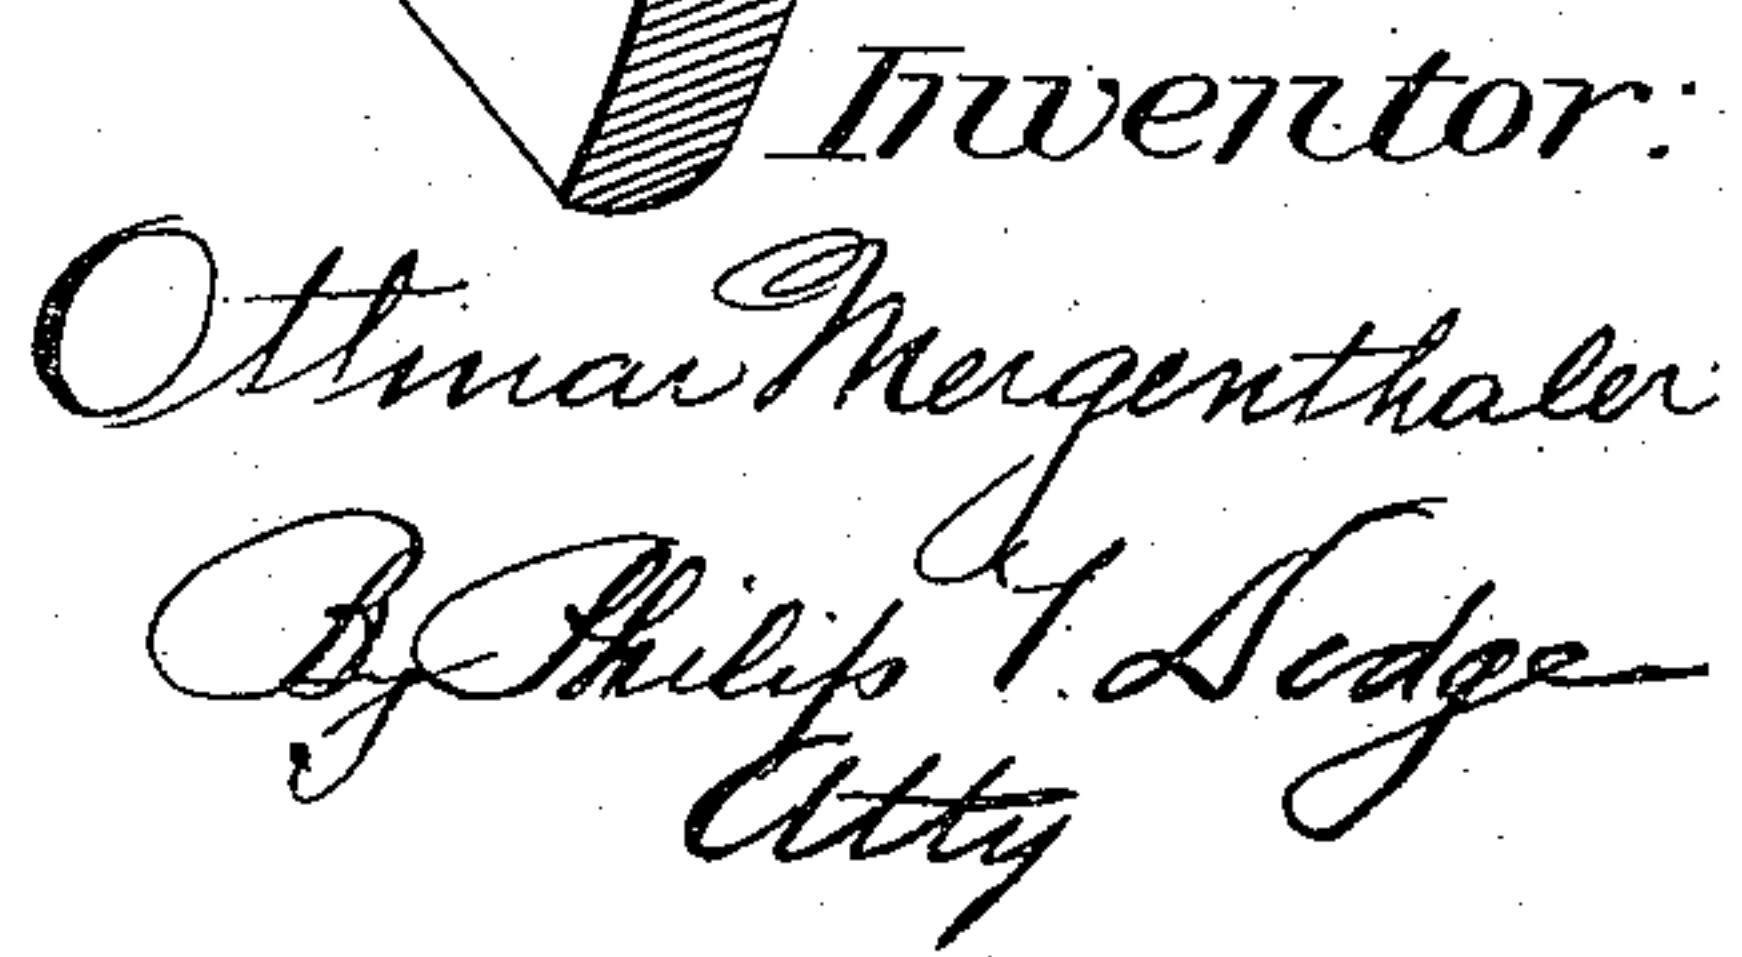 Inventor:
Ottmar Mergenthaler
By Philip T. Dodge
Atty